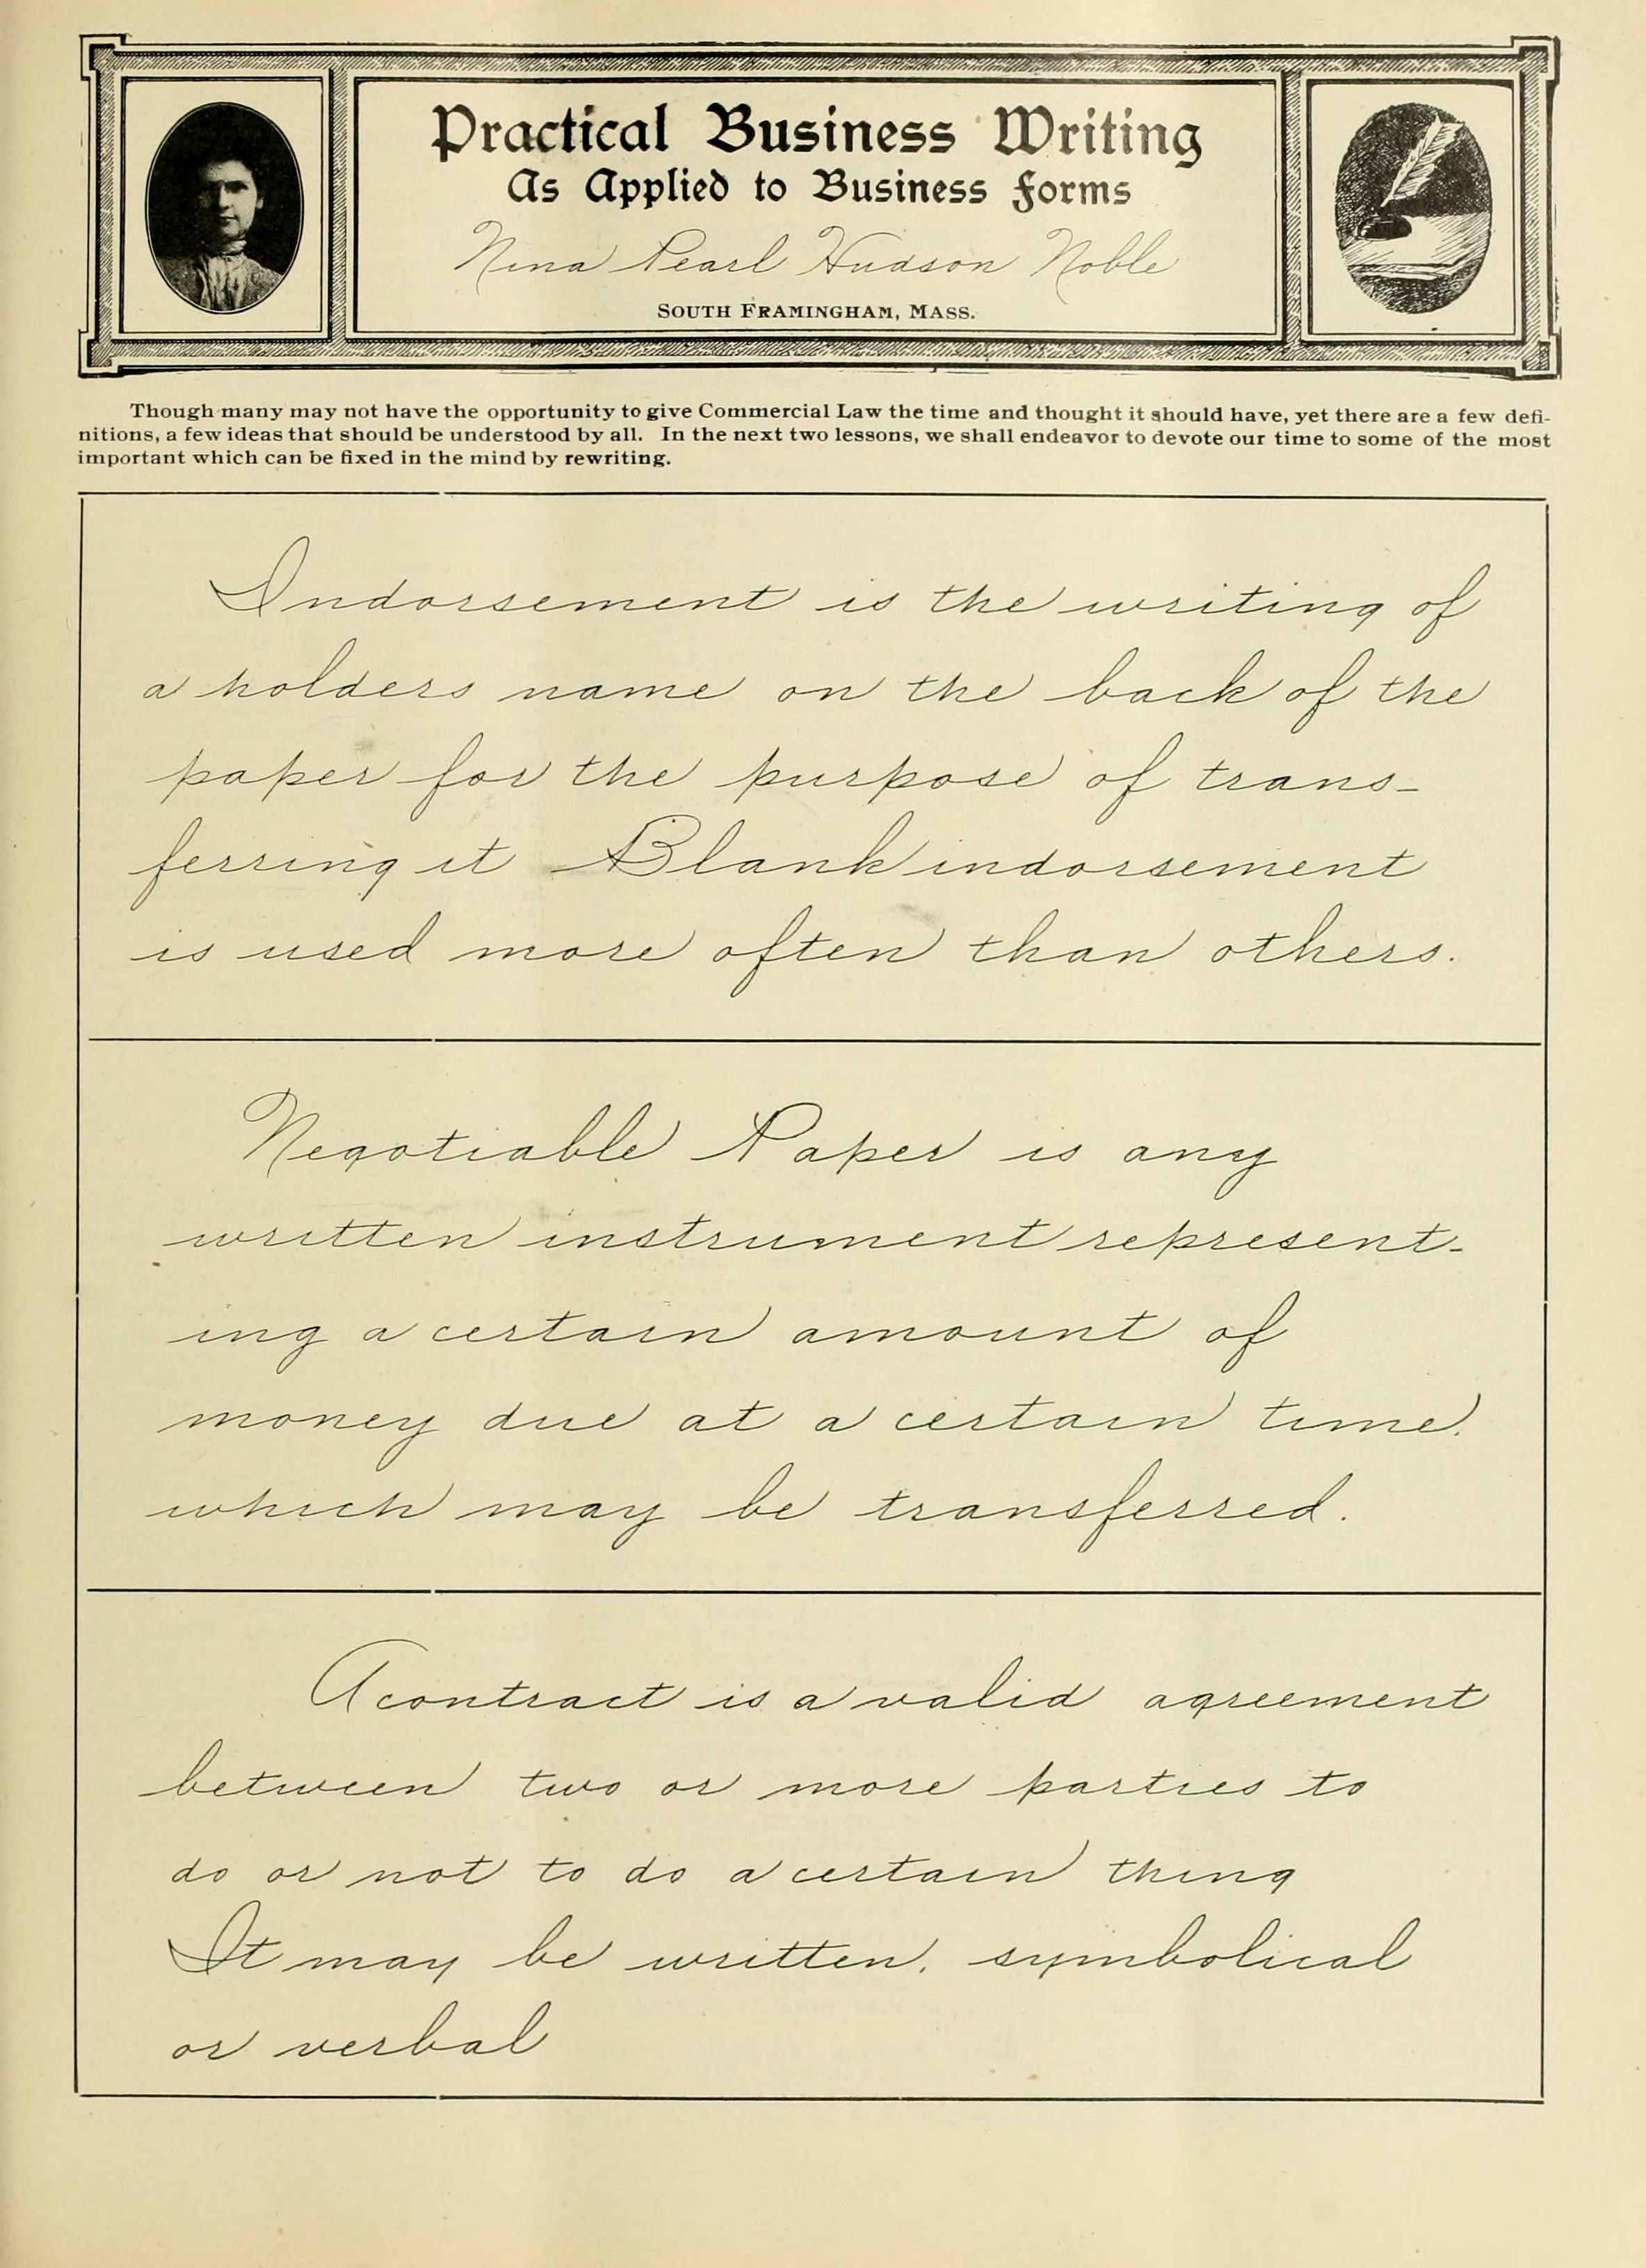 Practical Business Writing
As Applied to Business Forms
Nina Pearl Hudson Noble
SOUTH FRAMINGHAM, MASS.
Though many may not have the opportunity to give Commercial Law the time and thought it should have, yet there are a few defi-
nitions, a few ideas that should be understood by all. In the next two lessons, we shall endeavor to devote our time to some of the most
important which can be fixed in the mind by rewriting.
Indorsement is the writing of
a holders name on the back of the
paper for the purpose of trans-
ferring it Blank indorsement
is used more often than others.
Negotiable Paper is any
written instrument represent-
ing a certain amount of
money due at a certain time,
which may be transferred.
A contract is a valid agreement
between two or more parties to
do or not to do a certain thing
It may be written, symbolical
or verbal